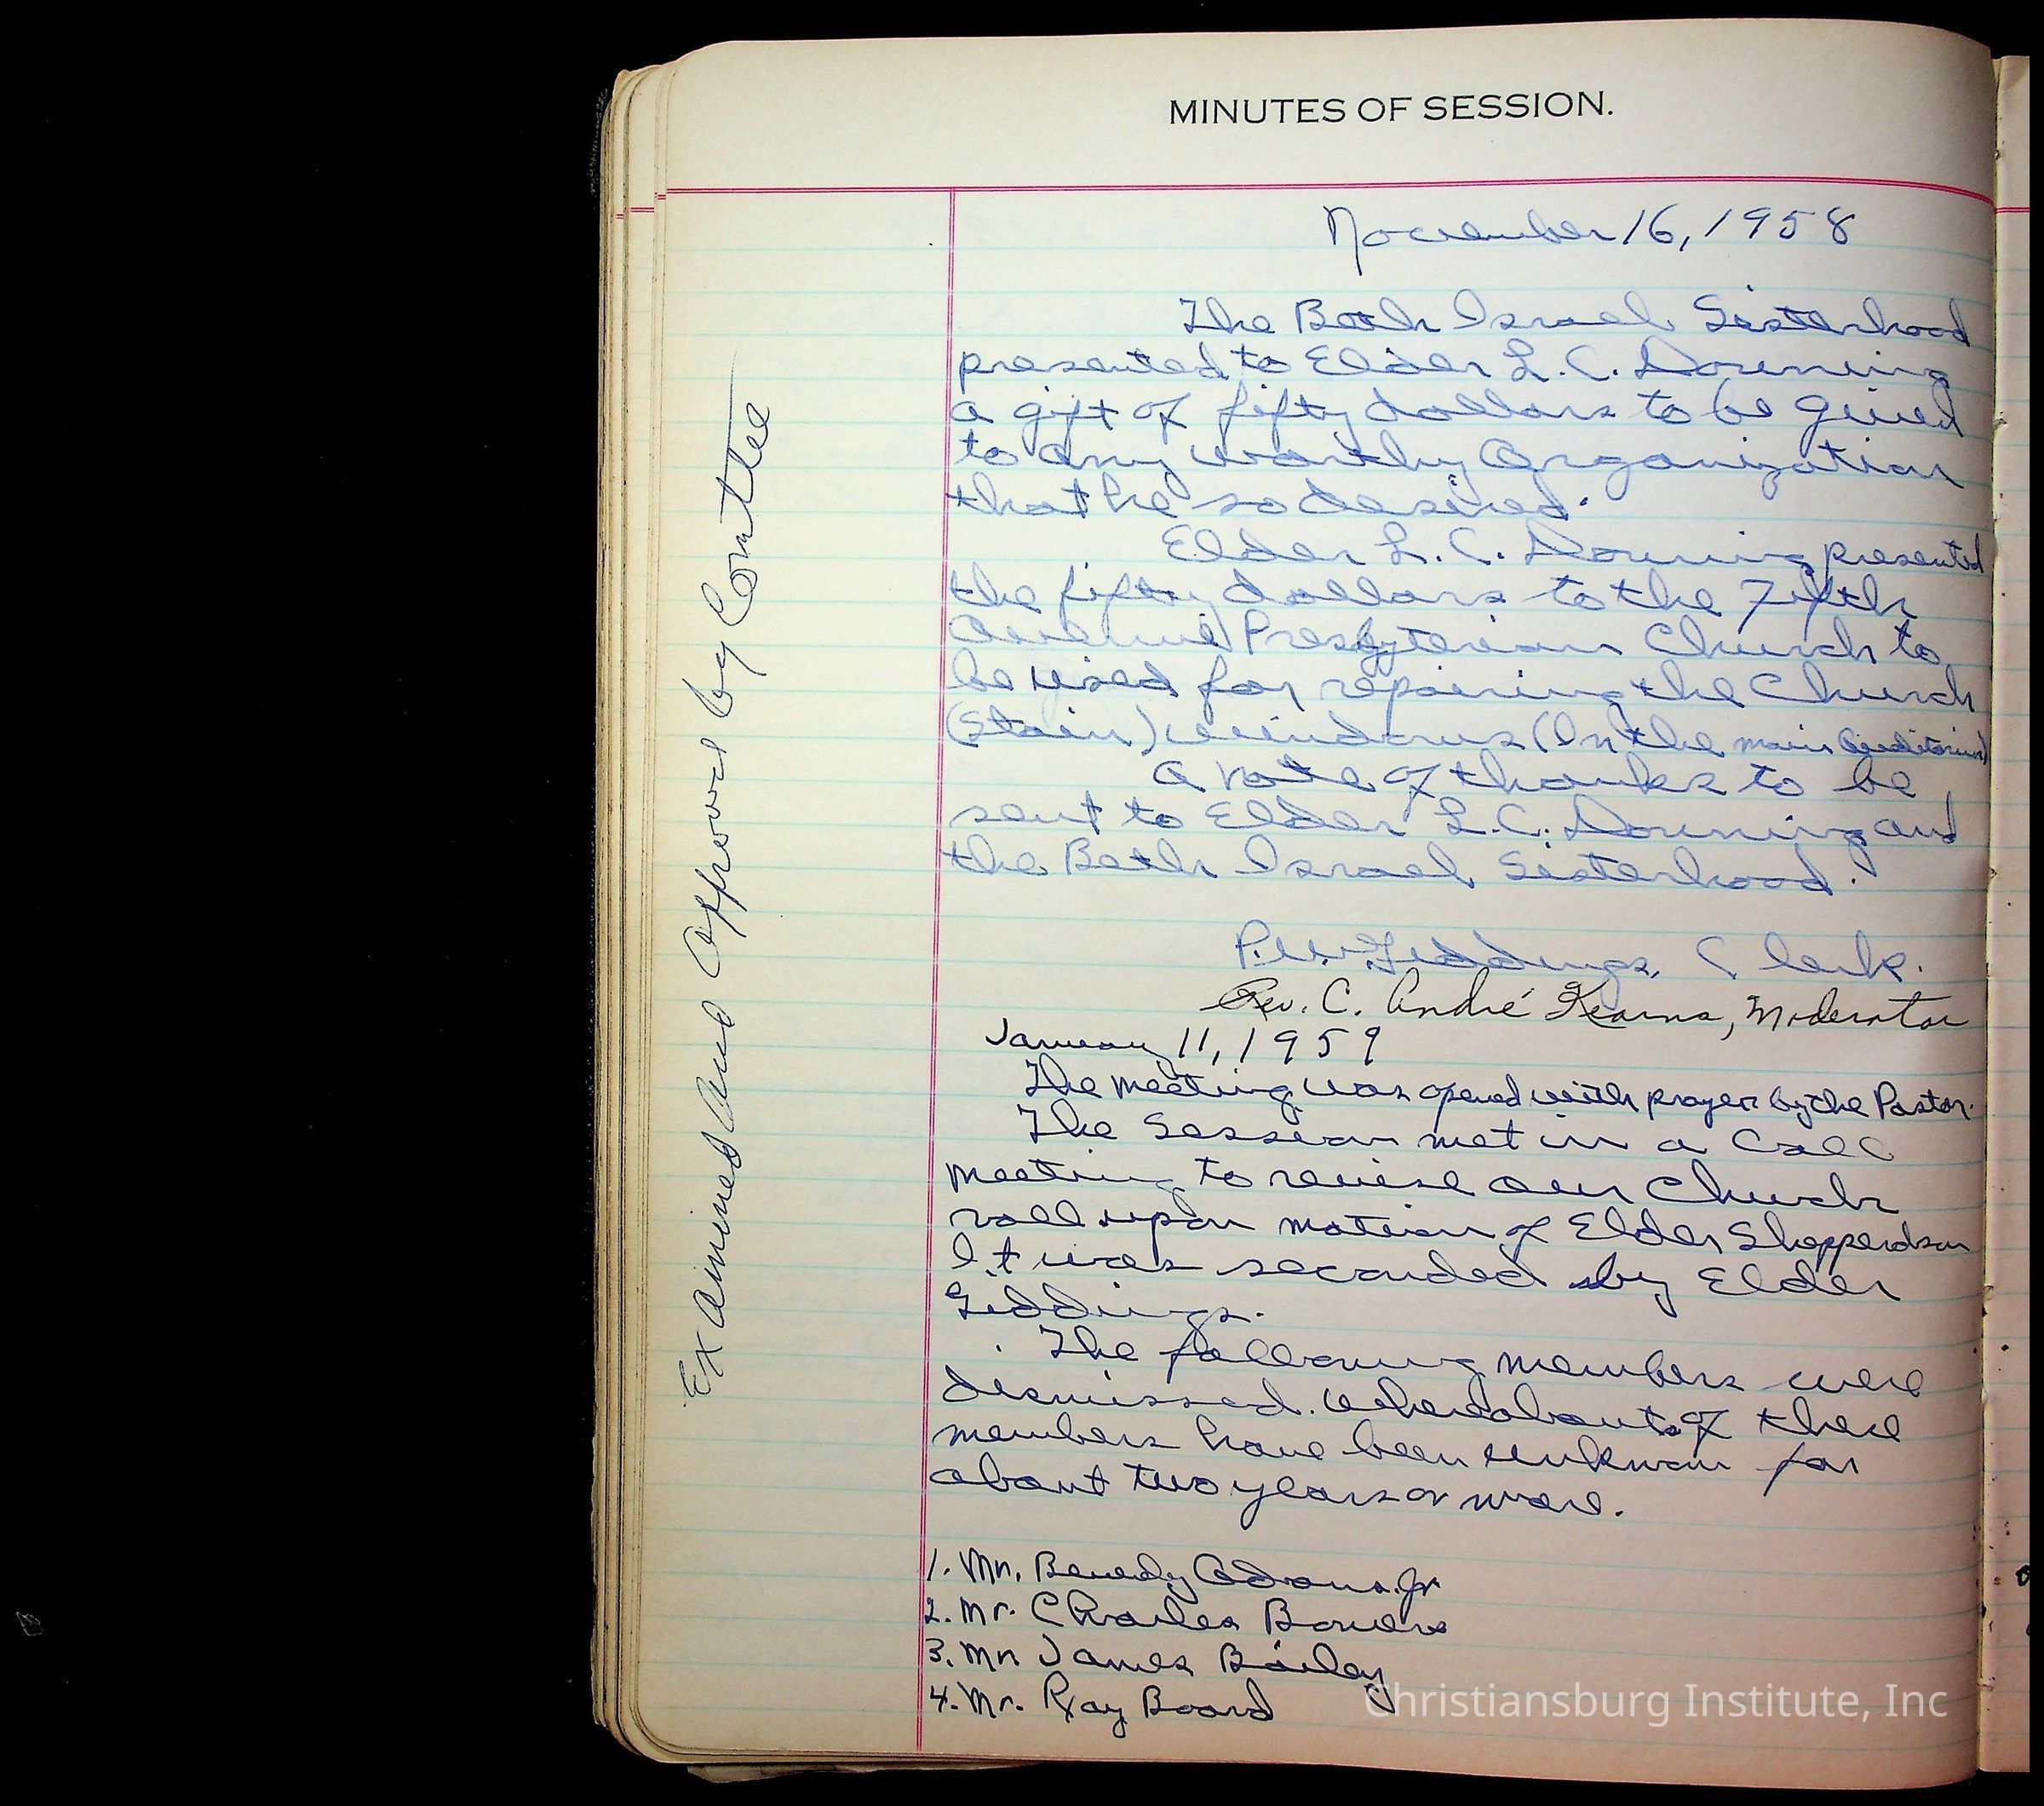 MINUTES OF SESSION.
November 16, 1958
The Beth Israel Sisterhood
presented to Elder L. C. Downing
a gift of fifty dollars to be gived
to any worthy Organization
that he so desired.
Elder L. C. Downing presented
the fifty dollars to the Fifth
Avenue Presbyterian Church to
be used for repairing the Church
(Stain) windows (In the main auditorium)
A vote of thanks to be
sent to Elder L. C. Downing and
the Beth Israel Sisterhood.
P. W. Giddings, Clerk.
Rev. C. André Kearns, Moderator
January 11, 1959
The meeting was opened with prayer by the Pastor.
The Session met in a Call
meeting to revise our Church
roll upon motion of Elder Shepperdson
It was seconded by Elder
Giddings.
The following members were
dismissed. Whereabouts of these
members have been unknown for
about two years or more.
1. Mr. Beverly Adams. Jr
2. Mr. Charles Bowers
3. Mr. James Bailey
4. Mr. Ray Board
Examined and Approved by Comttee
Christiansburg Institute, Inc